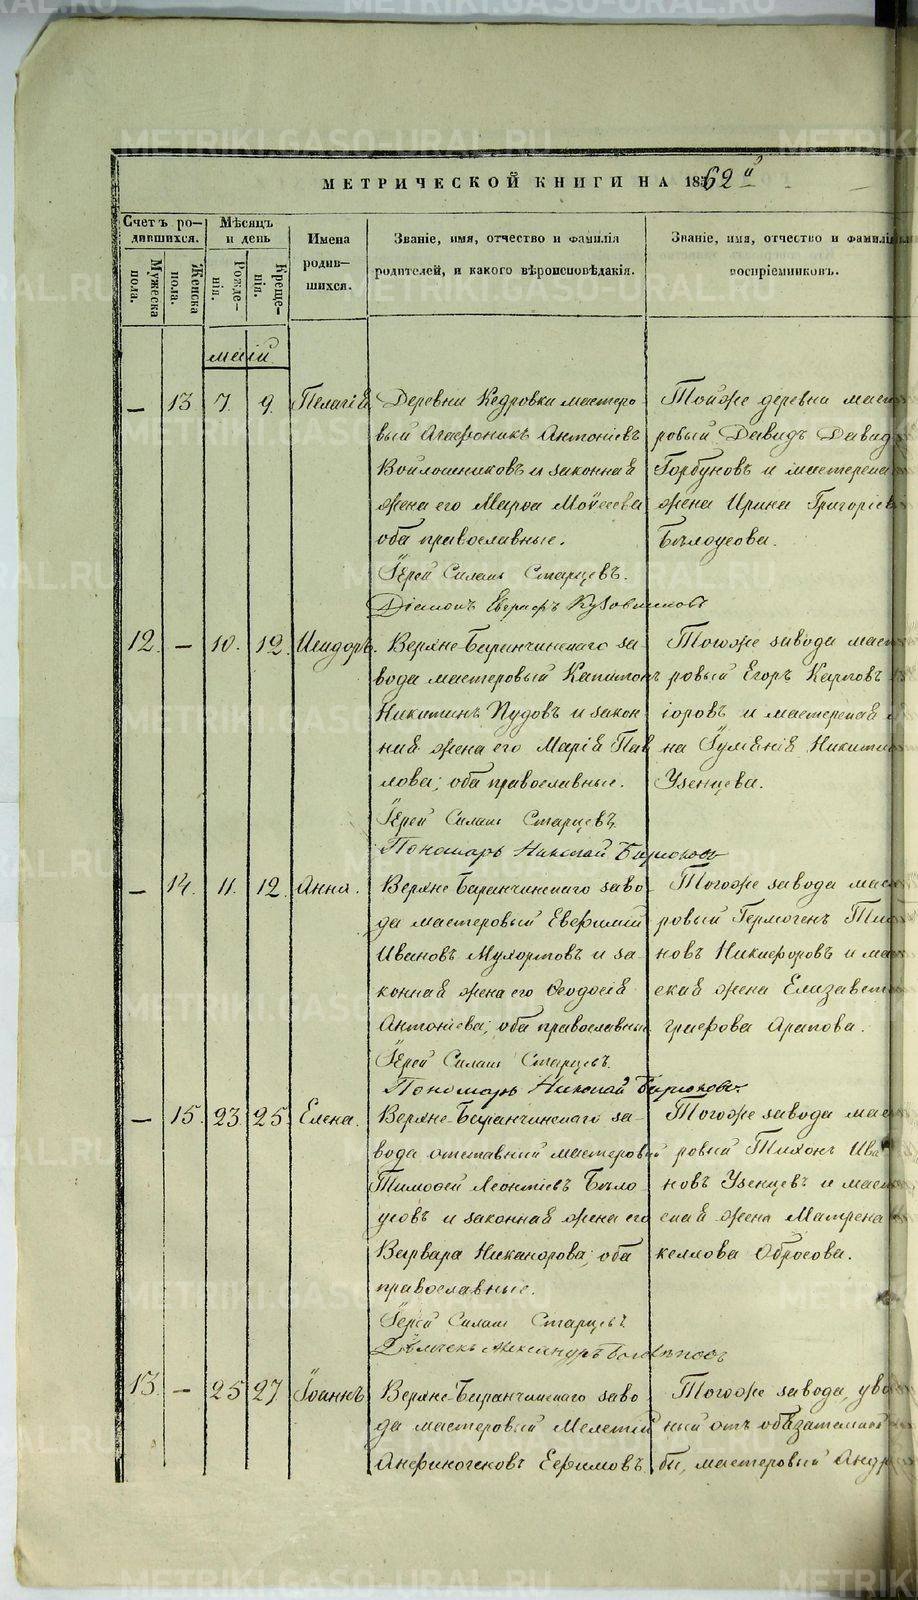 МЕТРИЧЕСКОЙ КНИГИ НА 1862й
Счетъ ро-
дившихся.
Мужеска
пола.
Женска
пола.
Мѣсяцъ
и день
Рожде-
нія.
Креще-
нія.
Имена
родив-
шихся.
Званіе, имя, отчество и фамилія
родителей, и какого вѣроисповѣданія.
Званіе, имя, отчество и фамилія
воспріемниковъ.
маій
— 13 7. 9. Пелагія
Деревни Кедровки мастеро
вый Агафоникъ Антоніевъ
Войлошниковъ и законная
жена его Марѳа Моѵсеева
оба православные.
Іерей Силинъ Старцевъ.
Діаконъ Евграфъ Кузовниковъ
Тойже деревни масте
ровый Давидъ Давид
Горбуновъ и мастерска
жена Ирина Григоріев
Бѣлоусова.
12. — 10. 12. Исидоръ.
Верхне-Баранчинскаго за-
вода мастеровый Капитонъ
Никитинъ Пудовъ и закон
ная жена его Марія Пав
лова; оба православные.
Іерей Силинъ Старцевъ
Пономарь Николай Бирюковъ
Тогоже завода масте
ровый Егоръ Карповъ
іоровъ и мастерская
на Іуліанія Никити
Узенцева.
— 14. 11. 12. Анна.
Верхне-Баранчинскаго заво-
да мастеровый Евфимій
Ивановъ Мухортовъ и за-
конная жена его Ѳеодосія
Антоніева; оба православные
Іерей Силинъ Старцевъ.
Пономарь Николай Бирюковъ.
Тогоже завода масте
ровый Гермогенъ Тихо
новъ Никифоровъ и мас
ская жена Елизавета
графова Арапова.
— 15. 23. 25. Елена.
Верхне-Баранчинскаго за-
вода отставный мастеровый
Тимоѳей Леонтіевъ Бѣло
усовъ и законная жена его
Варвара Никанорова; оба
православные.
Іерей Силинъ Старцевъ
Дьячекъ Александръ
Тогоже завода мас
ровый Тихонъ Ива
новъ Узенцевъ и масте
ская жена Матрена
келлова Обросова.
13. — 25 27 Іоаннъ
Верхне-Баранчинскаго заво
да мастеровый Мелетій
Анфиногеновъ Ефимовъ
Тогоже завода, уво
ный отъ обязательной
бы, мастеровый Андр
METRIKI.GASO-URAL.RU